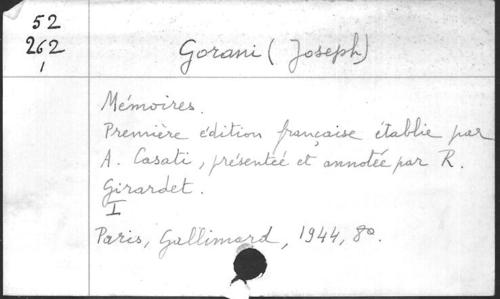 52
262
1
Gorani (Joseph)
Mémoires.
Première édition française établie par
A. Casati, présentée et annotée par R.
Girardet.
I
Paris, Gallimard, 1944, 8º.